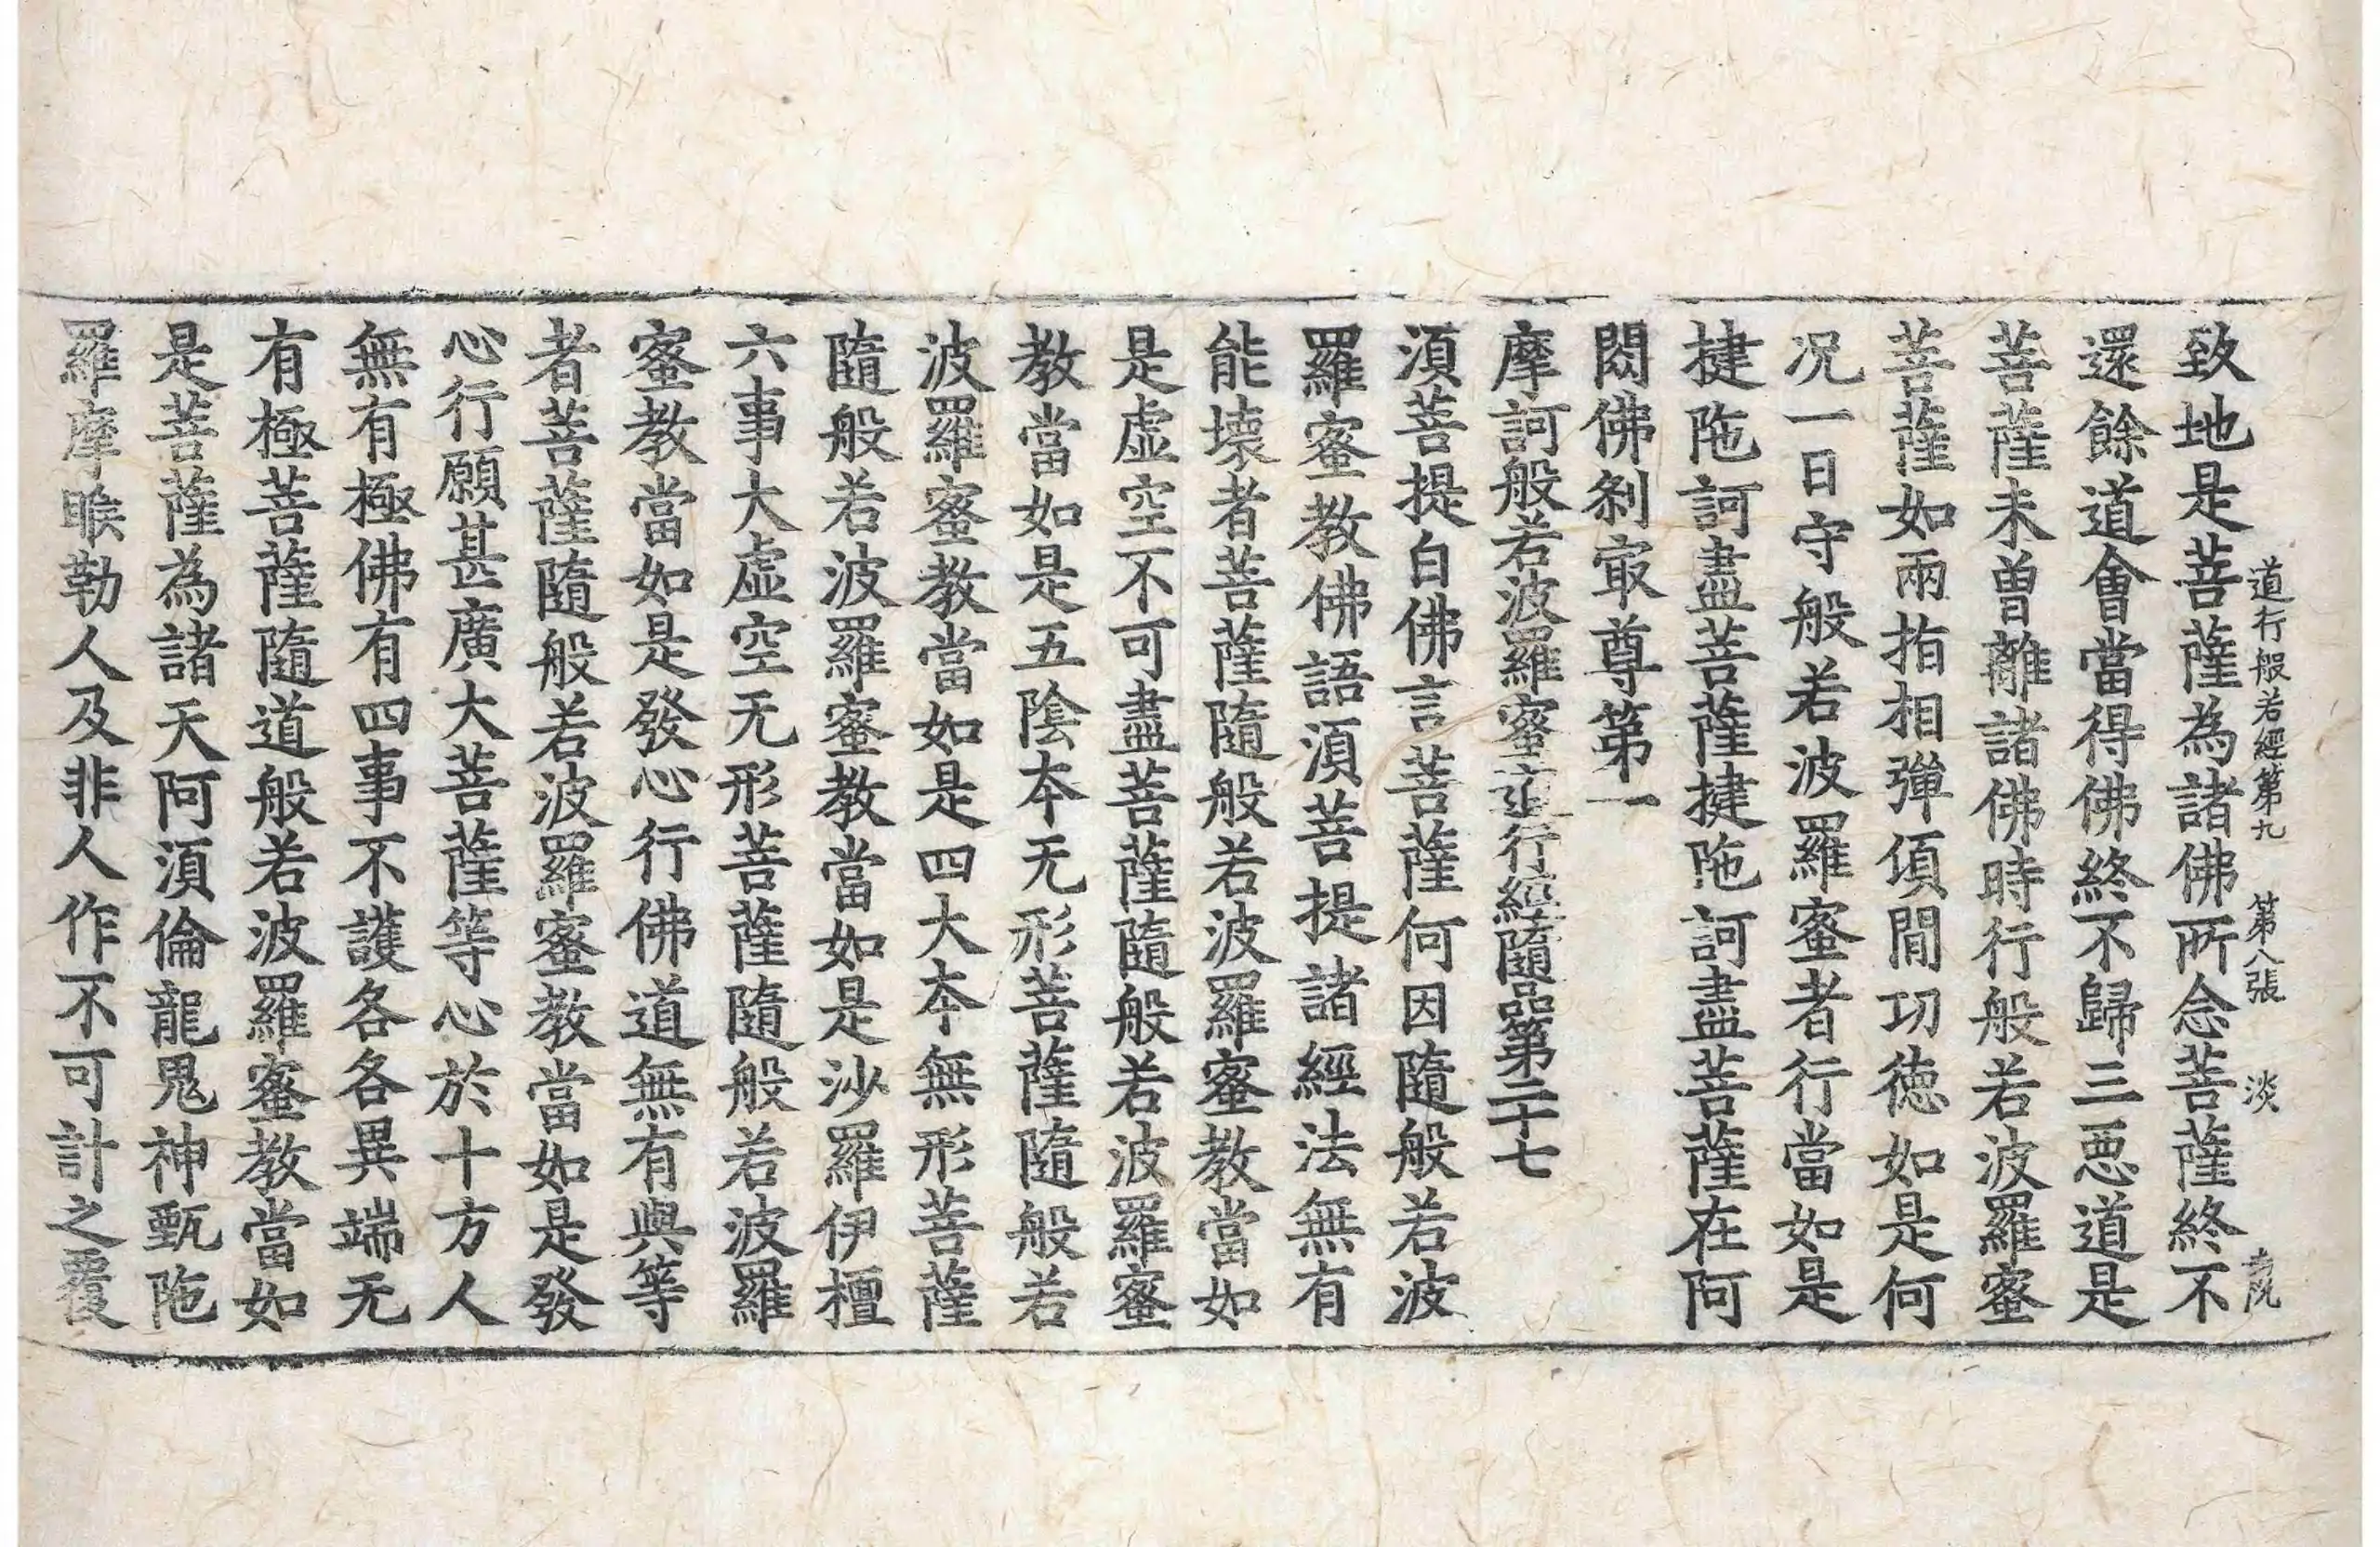 道行般若經第九 第八張 淡
致地是菩薩為諸佛所念菩薩終不
還餘道會當得佛終不歸三惡道是
菩薩未曾離諸佛時行般若波羅蜜
菩薩如兩指相彈頃間功德如是何
况一日守般若波羅蜜者行當如是
揵陁訶盡菩薩揵陁訶盡菩薩在阿
閦佛剎㝡尊第一
摩訶般若波羅蜜道行經隨品第二十七
湏菩提白佛言菩薩何因隨般若波
羅蜜教佛語湏菩提諸經法無有
能壞者菩薩隨般若波羅蜜教當如
是虛空不可盡菩薩隨般若波羅蜜
教當如是五陰本无形菩薩隨般若
波羅蜜教當如是四大本無形菩薩
隨般若波羅蜜教當如是沙羅伊檀
六事大虛空无形菩薩隨般若波羅
蜜教當如是發心行佛道無有與等
者菩薩隨般若波羅蜜教當如是發
心行願甚廣大菩薩等心於十方人
無有極佛有四事不護各各異端无
有極菩薩隨道般若波羅蜜教當如
是菩薩為諸天阿湏倫龍鬼神甄陁
羅摩睺勒人及非人作不可計之覆